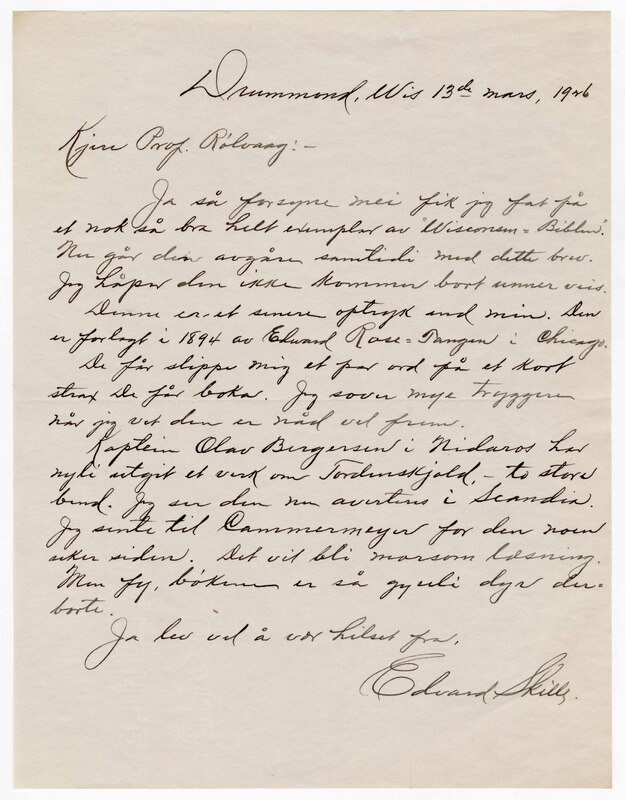 Drummond, Wis 13de mars, 1926
Kjære Prof. Rölvaag:-
Ja så forsyne mei fik jeg fat på
et nok så bra helt exemplar av "Wisconsin=Biblen".
Nu går den avgåre samtidi med dette brev.
Jeg håper den ikke kommer bort unner veis.
Denne er et senere optryk end min. Den
er forlagt i 1894 av Edward Rose=Tangen i Chicago.
De får slippe mig et par ord på et kort
strax De får boka. Jeg sover mye tryggere
når jeg vet den er nåd vel frem.
Kaptein Olav Bergersen i Nidaros har
nyli utgit et verk om Tordenskjold, - to store
bind. Jeg ser den nu avertens i Scandia.
Jeg sente til Cammermeyer for den noen
uker siden. Det vil bli morsom læsning.
Men fy, bökene er så gyseli dyr der=
borte.
Ja lev vel å vær hilset fra,
Edvard Skille.